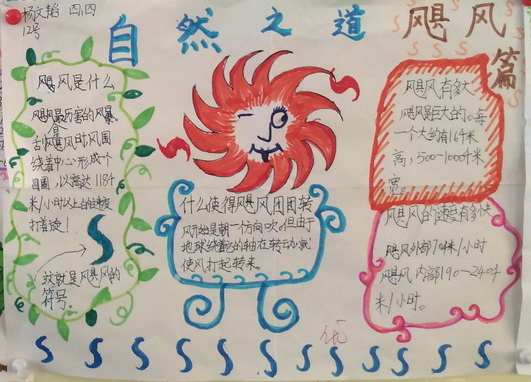 杨文韬 四,四
12号
自然之道
飓风篇
飓风是什么
飓风最厉害的风暴。
刮飓风时风围
绕着中心形成个
圆圈,以高达118千
米/小时以上的速度
打着旋!
这就是飓风的
符号。
什么使得飓风团团转
风开始是朝一个方向吹。但由于
地球绕着的轴在转动就
使风打起转来
飓风有多大
飓风是巨大的。每
一个大约有16千米
高,500-1000千米
宽。
飓风的速度有多快
飓风外部104米/小时
飓风内部190-240千
米/小时。